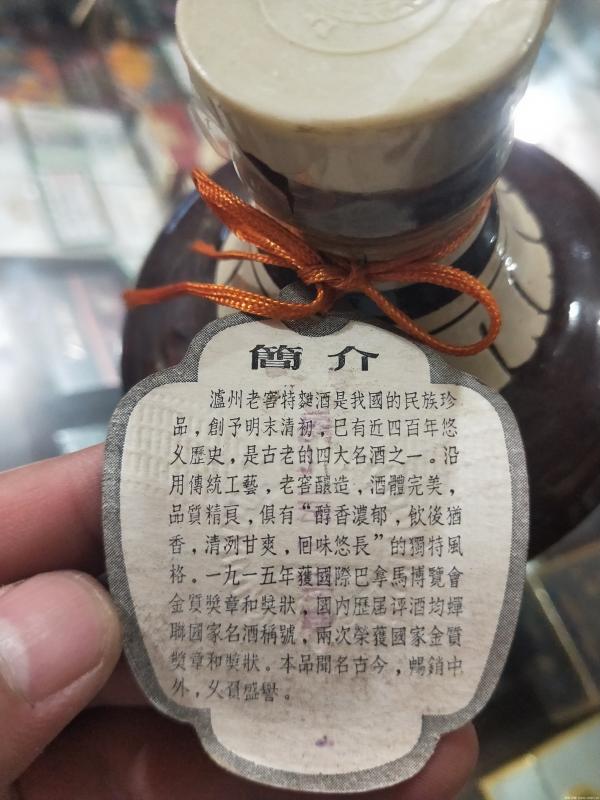 簡介
瀘州老窖特麯酒是我國的民族珍
品，創予明末清初，巳有近四百年悠
久歷史，是古老的四大名酒之一。沿
用傳統工藝，老窖釀造，酒體完美，
品質精良，俱有“醇香濃郁，飲後猶
香，清洌甘爽，囘味悠長”的獨特風
格。一九一五年獲國際巴拿馬博覽會
金質奬章和奬狀，國内歷屆评酒均蟬
聯國家名酒稱號，兩次榮獲國家金質
奬章和奬狀。本品聞名古今，暢銷中
外，久負盛譽。